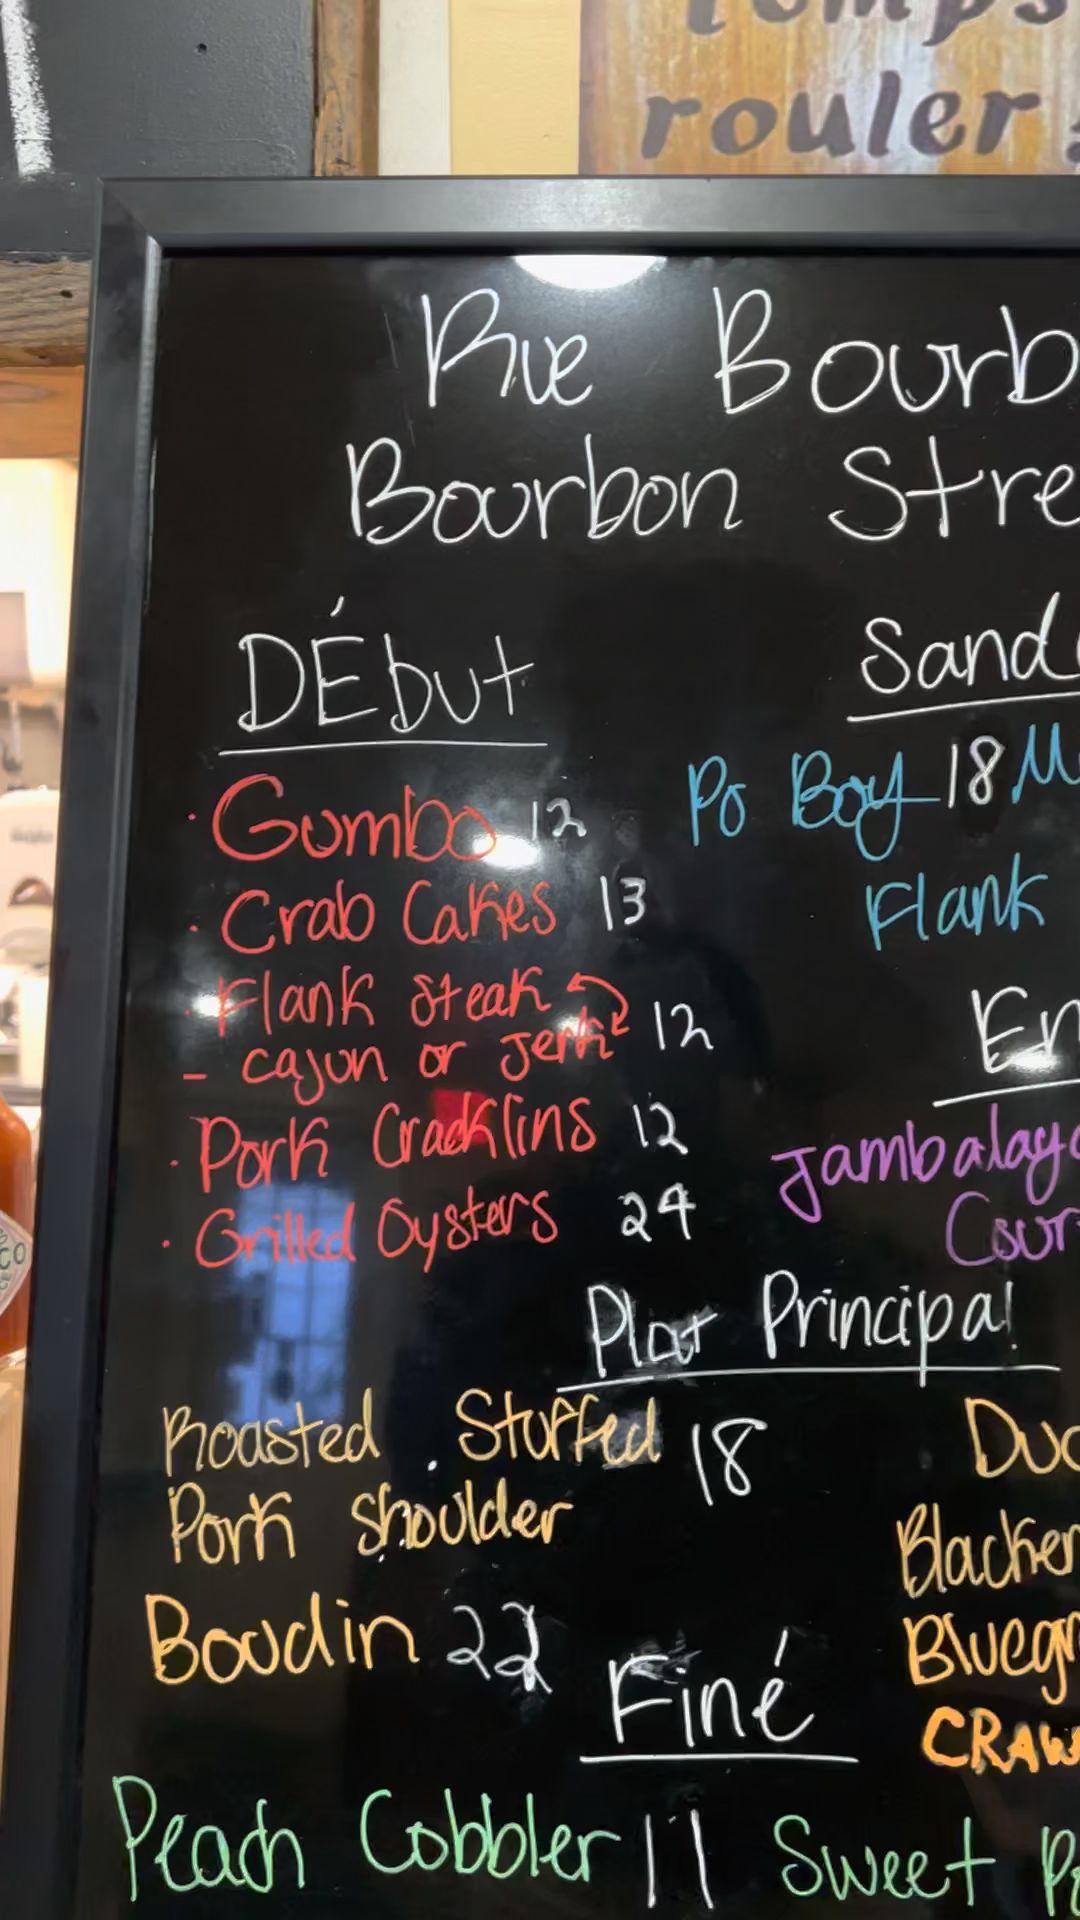 rouler
Rue Bourb
Bourbon Stre
DÉbut
· Gumbo 12
· Crab Cakes 13
· Flank Steak
- cajun or jerk 12
· Pork Cracklins 12
· Grilled Oysters 24
Sand
Po Boy 18 M
Flank
En
Jambalaya
Cour
Plat Principal
Roasted . Stuffed 18
Pork shoulder
Boudin 22
Duc
Blacken
Bluegr
CRAW
Finé
Peach Cobbler 11 Sweet Po